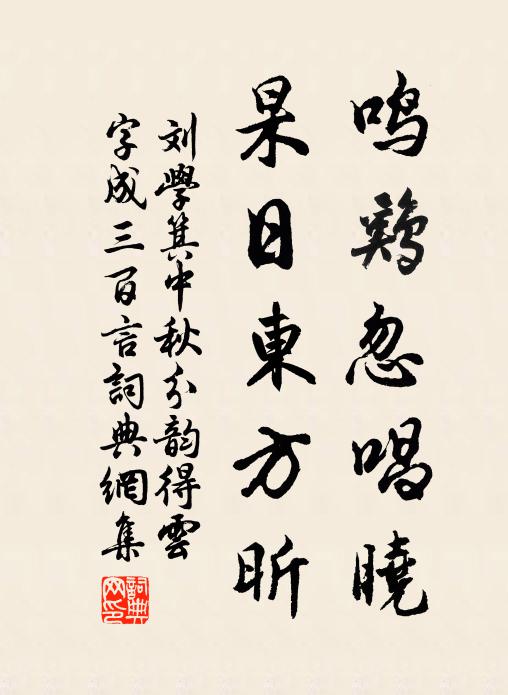 鸣鸡忽唱曉
杲日東方昕
刘學箕中秋分韵得雲
字成三百言詞典網集
詞典网印